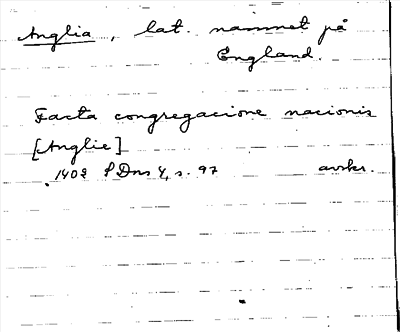 Anglia, lat. namnet på
England.
Facta congregacione nacionis
[Anglie]
1402 SDns 4, s. 97 avskr.